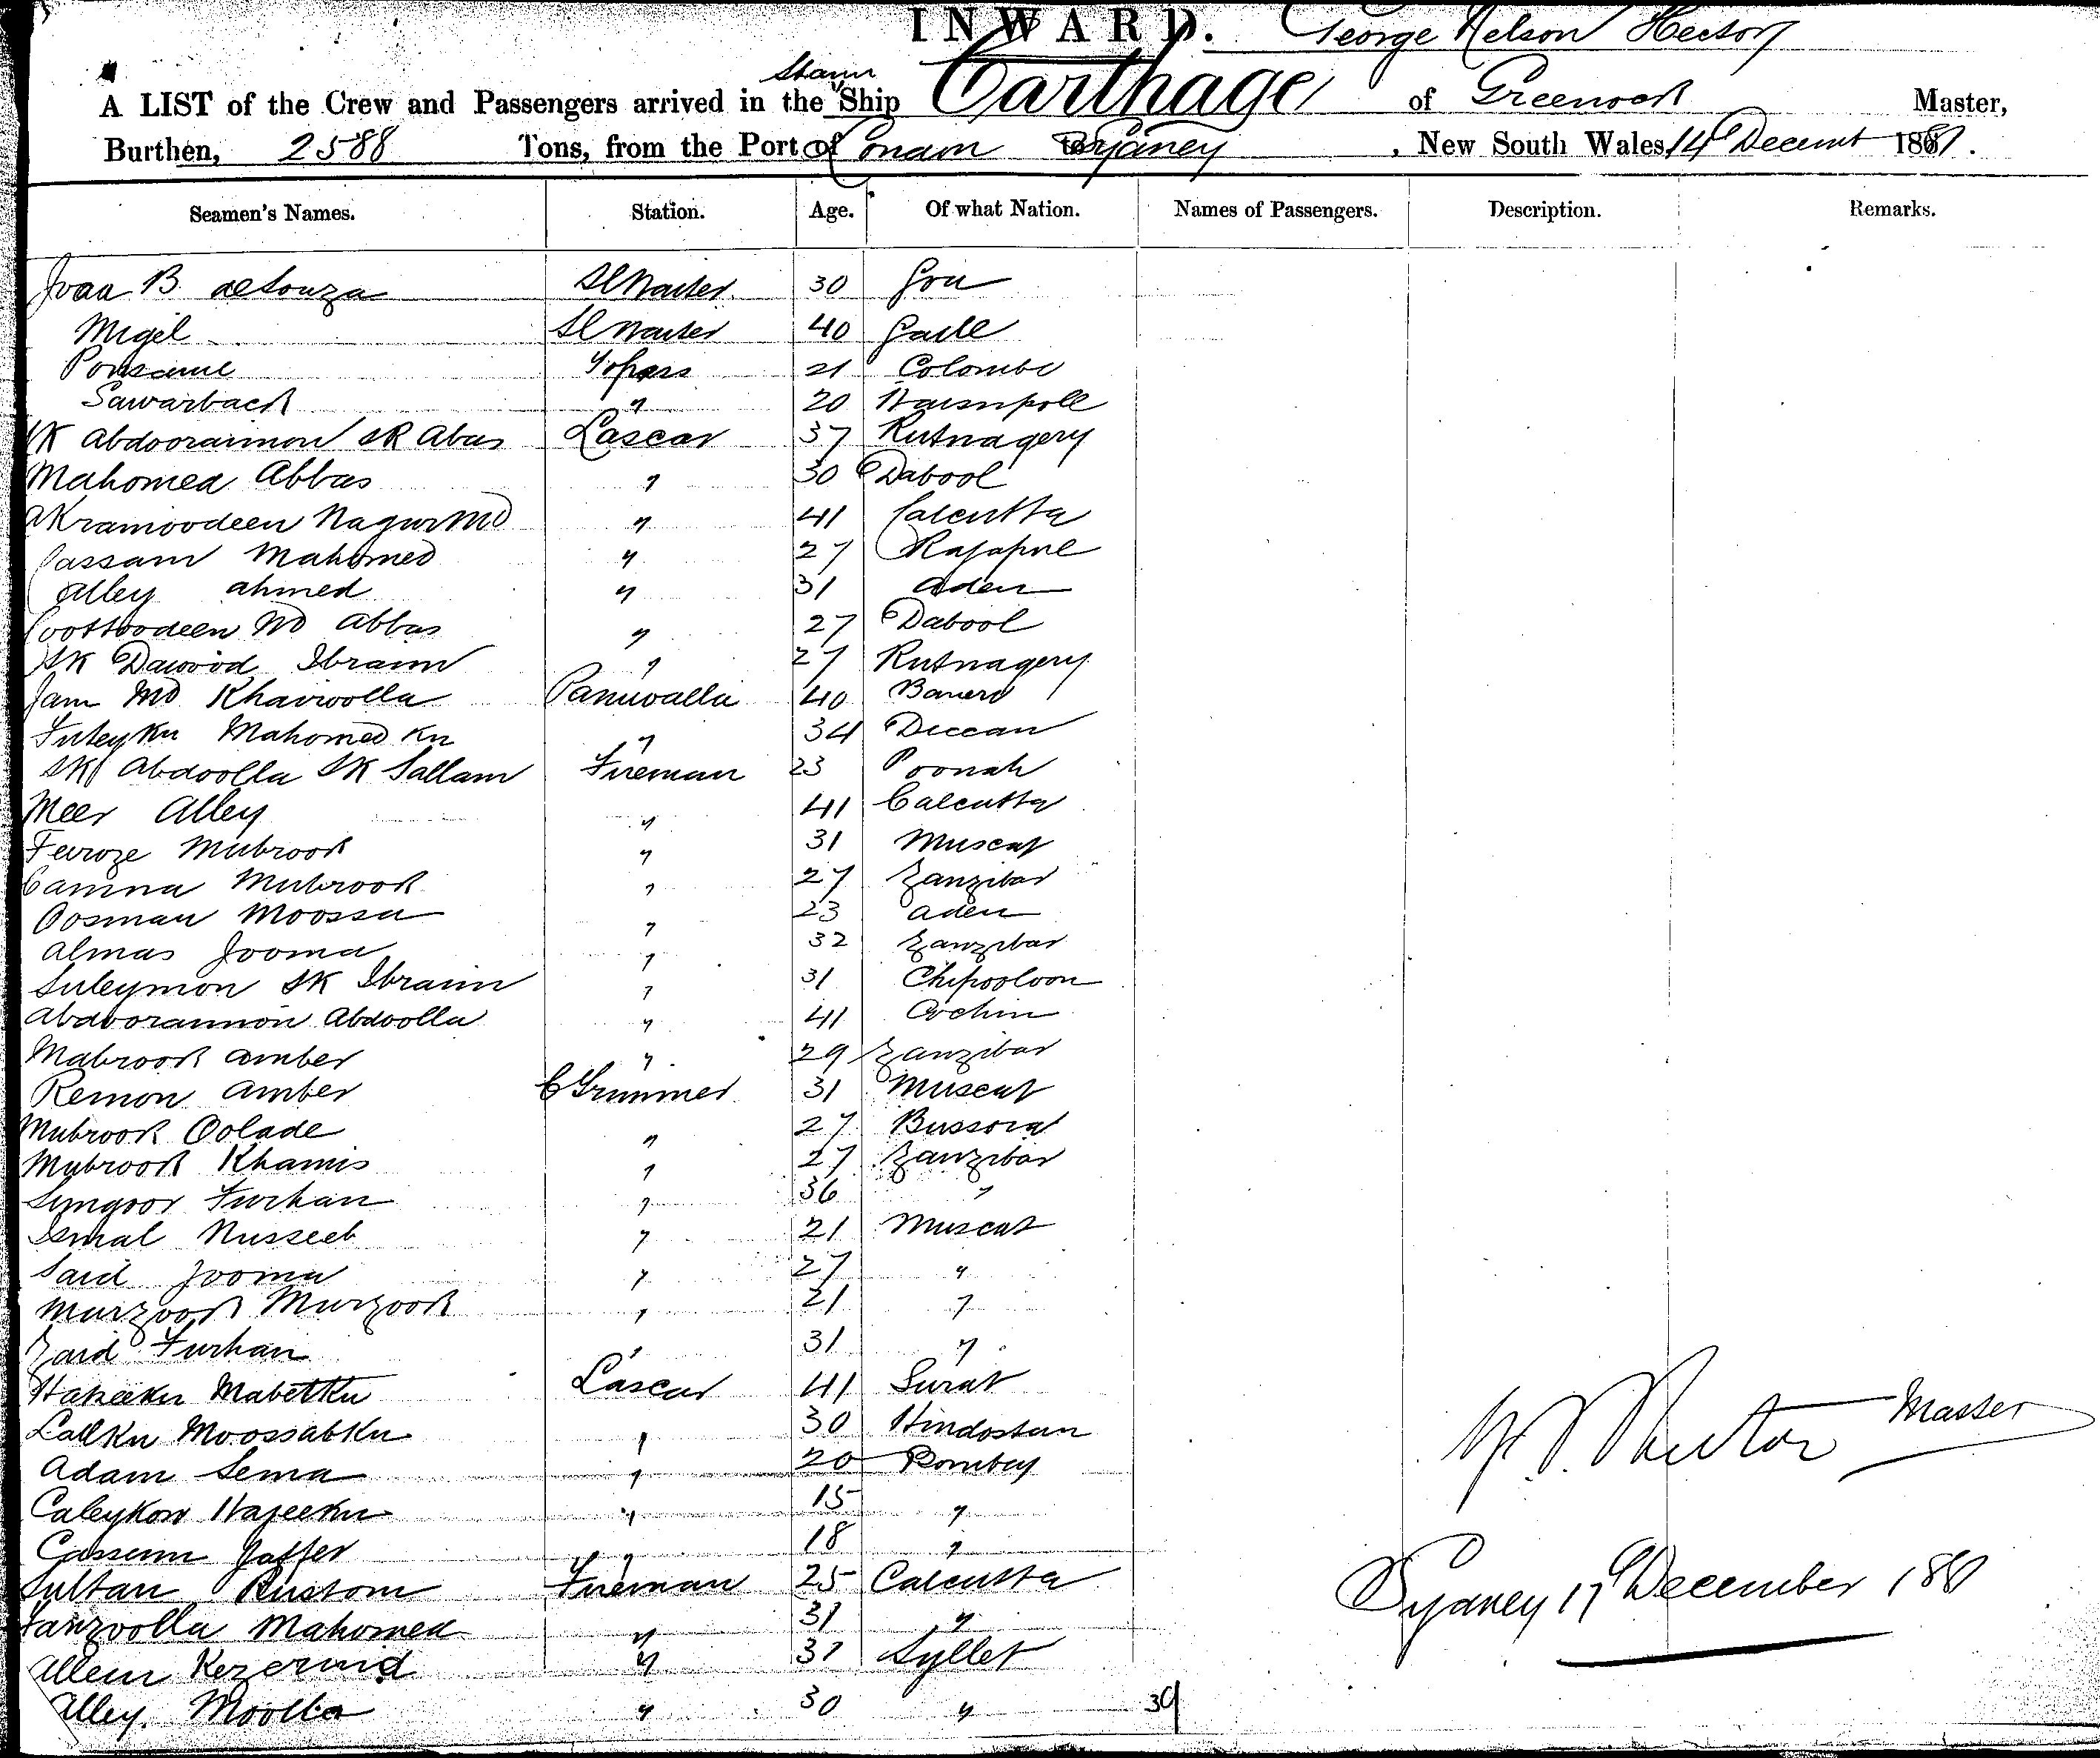 INWARD. George Nelson Hector
A LIST of the Crew and Passengers arrived in the Steam Ship Carthage of Greenock Master,
Burthen, 2588 Tons, from the Port of London to Sydney, New South Wales, 14 Decemr 1881.
Seamen's Names. Station. Age. Of what Nation. Names of Passengers. Description. Remarks.
Joaa B de Souza Sl Waiter 30 Goa
Migel Sl Waiter 40 Galle
Topass 21 Colombo
Sawarback " 20
SK Abdooraimon SK Abas Lascar 37 Rutnagery
Mahomed Abbas " 30 Dabool
Akramoodeen Nagur Md " 41 Calcutta
Cassam Mahomed " 27 Rajapore
Alley Ahmed " 31 Aden
Coottoodeen Md Abbas " 27 Dabool
SK Dawood Ibraim " 27 Rutnagery
Jam Md Khairoolla Paniwalla 40
Futeyku Mahomed Ku " 34 Deccan
SK Abdoolla SK Sallam Fireman 23 Poonah
Meer Alley " 41 Calcutta
Feroze Mubrook " 31 Muscat
Camna Mubrook " 27 Zanzibar
Oosman Moossa " 23 Aden
Almas Jooma " 32 Zanzibar
Suleymon SK Ibraim " 31 Chipooloon
Abdooraimon Abdoolla " 41 Cochin
Mabrook Amber " 29 Zanzibar
Remon Amber C Trimmer 31 Muscat
Mubrook Oolade " 27 Bussora
Mubrook Khamis " 27 Zanzibar
Sungoor Furhan " 36 "
Ismal Nusseeb " 21 Muscat
Said Jooma " 27 "
Murzook Murzook " 21 "
Zaid Furhan " 31 "
Mabetku Lascar 41 Surat
Lallku Moossabku " 30 Hindostan
Adam Sema " 20 Bombay
Caleykon Hajeeku " 15 "
Cassem Jaffer " 18 "
Sultan Rustom Fireman 25 Calcutta
Fanzoolla Mahomed " 31 "
Allem " 31 Syllet
Alley Moolla " 30 " 39
Master
Sydney 17 December 1881